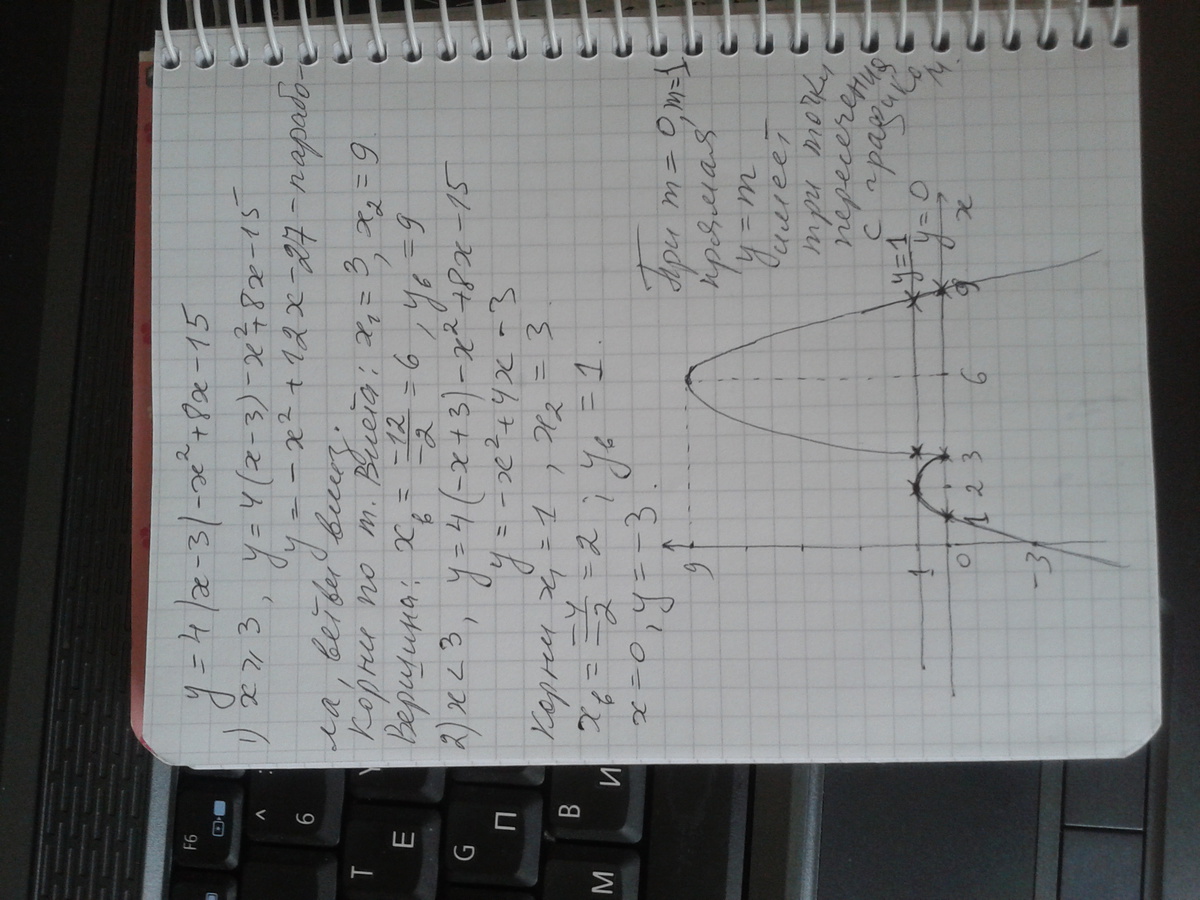 y = 4|x-3|-x²+8x-15
1) x⩾3, y=4(x-3)-x²+8x-15
y = -x²+12x-27-парабо-
ла, ветви вниз.
Корни по т. Виета: x₁=3, x₂=9.
Вершина: xв = -12/-2 = 6, yв = 9
2) x<3, y=4(-x+3)-x²+8x-15
y=-x²+4x-3
Корни x₁=1, x₂=3.
xв = -4/-2 = 2; yв = 1.
x=0, y=-3.
При m=0, m=1
прямая
y=m
имеет
три точки
пересечения
с графико
м.
9
y=1
y=0
x
1
0
1
2
3
6
9
-3
F6
^
6
T
E
G
П
В
И
М